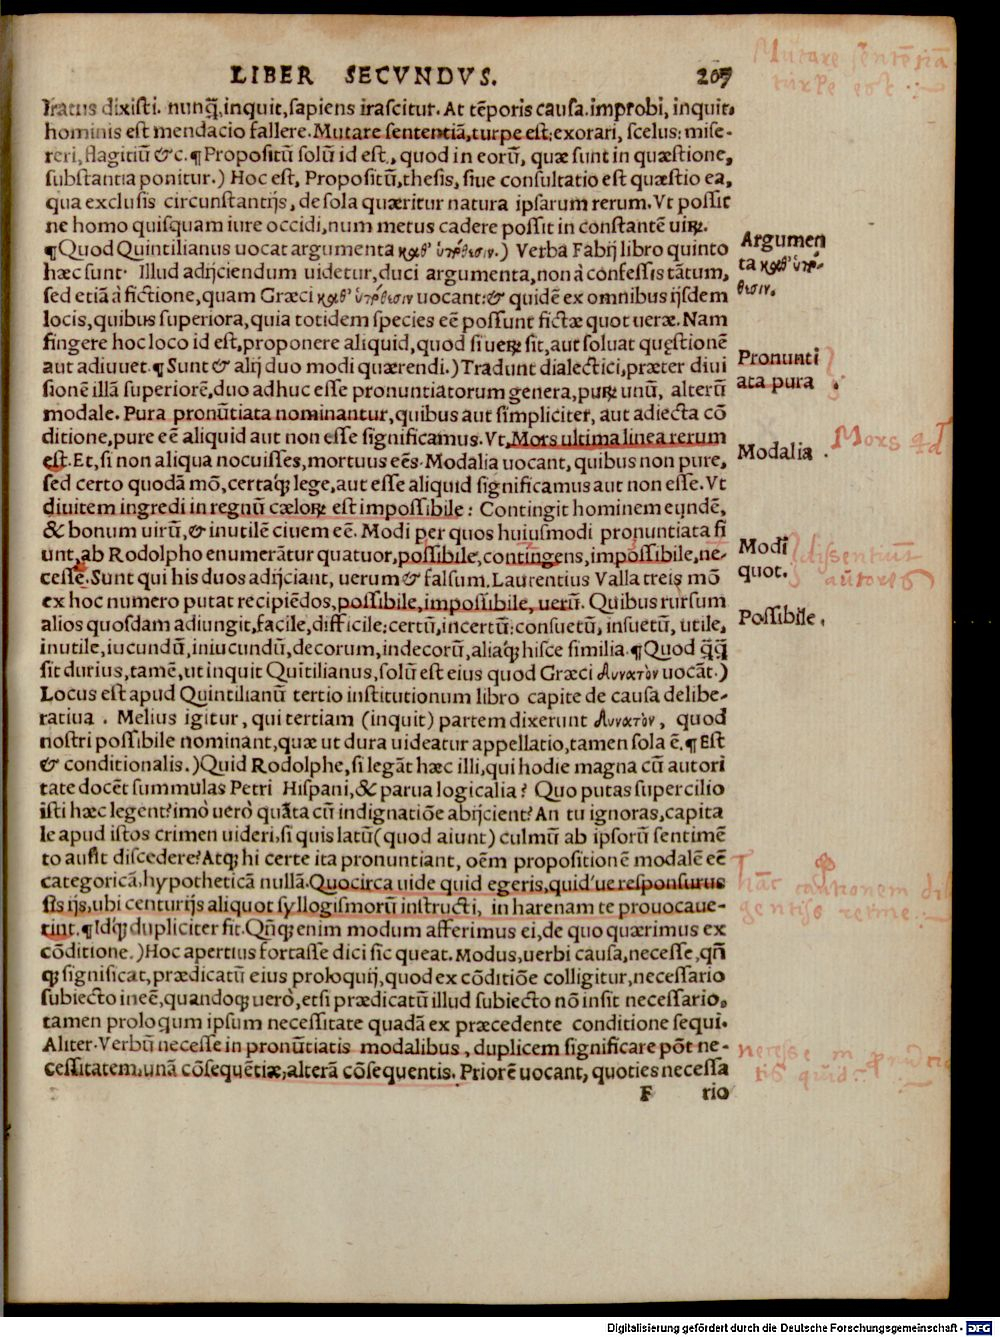 LIBER SECVNDVS. 207
Iratus dixisti. nunq̃, inquit, sapiens irascitur. At tẽporis causa. improbi, inquit,
hominis est mendacio fallere. Mutare sententiã, turpe est: exorari, scelus: mise-
reri, flagitiũ &c. ¶ Propositũ solũ id est, quod in eorũ, quæ sunt in quæstione,
substantia ponitur.) Hoc est, Propositũ, thesis, siue consultatio est quæstio ea,
qua exclusis circunstantijs, de sola quæritur natura ipsarum rerum. Vt possit
ne homo quisquam iure occidi, num metus cadere possit in constantẽ uiꝝ.
¶ Quod Quintilianus uocat argumenta καθ' ὑπόθεσιν.) Verba Fabij libro quinto
hæc sunt. Illud adijciendum uidetur, duci argumenta, non à confessis tãtum,
sed etiã à fictione, quam Græci καθ' ὑπόθεσιν uocant: & quidẽ ex omnibus ijsdem
locis, quibus superiora, quia totidem species eẽ possunt fictæ quot ueræ. Nam
fingere hoc loco id est, proponere aliquid, quod si ueꝝ sit, aut soluat quęstionẽ
aut adiuuet. ¶ Sunt & alij duo modi quærendi.) Tradunt dialectici, præter diui
sionẽ illã superiorẽ, duo adhuc esse pronuntiatorum genera, puꝝ unũ, alterũ
modale. Pura pronũtiata nominantur, quibus aut simpliciter, aut adiecta cõ
ditione, pure eẽ aliquid aut non esse significamus. Vt, Mors ultima linea rerum
est. Et, si non aliqua nocuisses, mortuus eẽs. Modalia uocant, quibus non pure,
sed certo quodã mõ, certaq́ꝫ lege, aut esse aliquid significamus aut non esse. Vt
diuitem ingredi in regnũ cæloꝝ est impossibile: Contingit hominem eundẽ,
& bonum uirũ, & inutilẽ ciuem eẽ. Modi per quos huiusmodi pronuntiata fi
unt, ab Rodolpho enumerãtur quatuor, possibile, contingens, impossibile, ne-
cesse. Sunt qui his duos adijciant, uerum & falsum. Laurentius Valla treis mõ
ex hoc numero putat recipiẽdos, possibile, impossibile, uerũ. Quibus rursum
alios quosdam adiungit, facile, difficile: certũ, incertũ: consuetũ, insuetũ, utile,
inutile, iucundũ, iniucundũ, decorum, indecorũ, aliaq́ꝫ hisce similia. ¶ Quod q̃q̃
sit durius, tamẽ, ut inquit Quĩtilianus, solũ est eius quod Græci δυνατὸν uocãt.)
Locus est apud Quintilianũ tertio institutionum libro capite de causa delibe-
ratiua. Melius igitur, qui tertiam (inquit) partem dixerunt δυνατὸν, quod
nostri possibile nominant, quæ ut dura uideatur appellatio, tamen sola ẽ. ¶ Est
& conditionalis.) Quid Rodolphe, si legãt hæc illi, qui hodie magna cũ autori
tate docẽt summulas Petri Hispani, & parua logicalia? Quo putas supercilio
isti hæc legent? imò uerò quãta cũ indignatiõe abijcient? An tu ignoras, capita
le apud istos crimen uideri, si quis latũ (quod aiunt) culmũ ab ipsorũ sentimẽ
to ausit discedere? Atqꝫ hi certe ita pronuntiant, oẽm propositionẽ modalẽ eẽ
categoricã, hypotheticã nullã. Quocirca uide quid egeris, quid ue responsurus
sis ijs, ubi centurijs aliquot syllogismorũ instructi, in harenam te prouocaue-
rint. ¶ Idq́ꝫ dupliciter fit. Qñqꝫ enim modum afferimus ei, de quo quærimus ex
cõditione.) Hoc apertius fortasse dici sic queat. Modus, uerbi causa, necesse, qñ
qꝫ significat, prædicatũ eius proloquij, quod ex cõditiõe colligitur, necessario
subiecto ineẽ, quandoqꝫ uerò, etsi prædicatũ illud subiecto nõ insit necessario,
tamen prologum ipsum necessitate quadã ex præcedente conditione sequi.
Aliter. Verbũ necesse in pronũtiatis modalibus, duplicem significare põt ne-
cessitatem, unã cõsequẽtiæ, alterã cõsequentis. Priorẽ uocant, quoties necessa
F rio
Argumen
ta καθ' ὑπό-
θεσιν.
Pronunti
ata pura
Modalia.
Modi
quot.
Possibile.
Mutare sententiã
turpe est
Mors
dissentiunt
autores
hãc cautionem dili
genti9 retine
necesse in
Digitalisierung gefördert durch die Deutsche Forschungsgemeinschaft - DFG